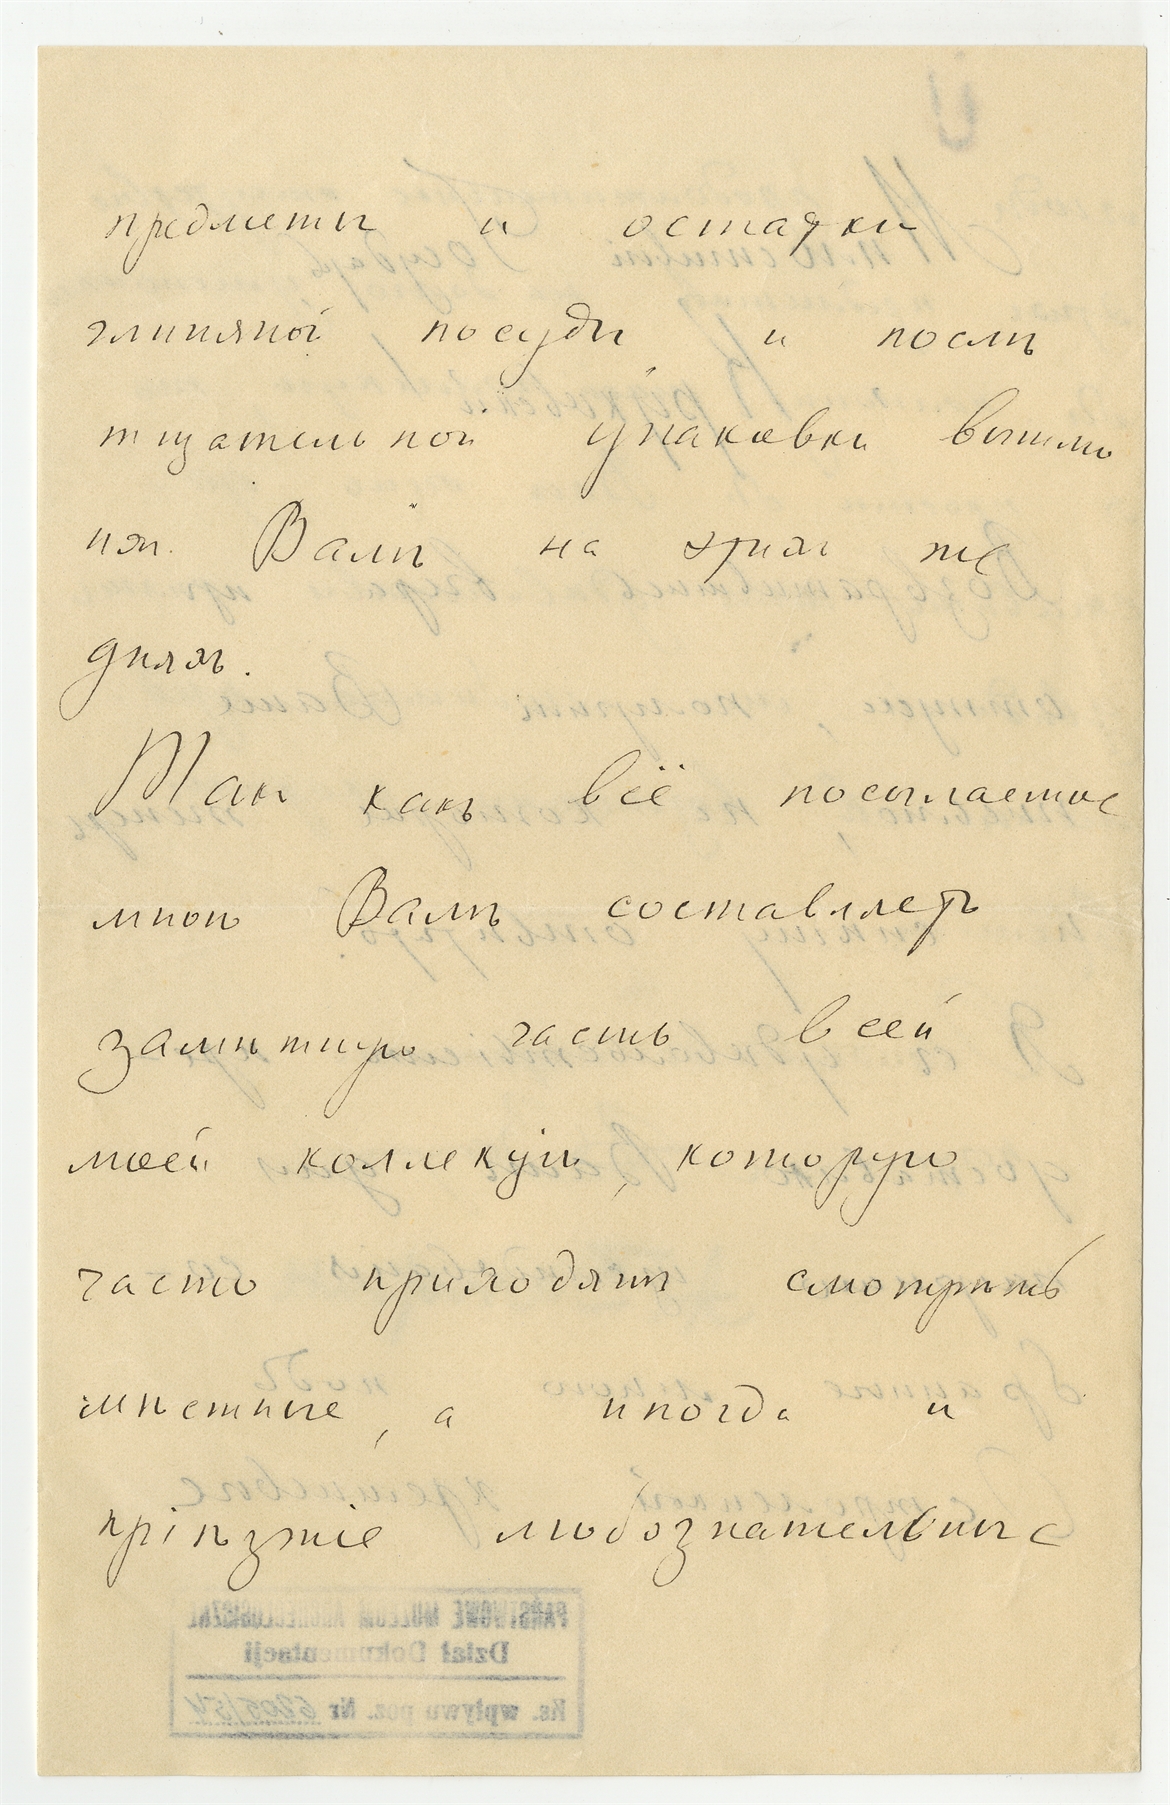 предметы и остатки
глиняной посуды и послѣ
тщательной упаковки вышлю
ихъ Вамъ на этихъ же
дняхъ.
Такъ какъ всё посылаемое
мною Вамъ составляетъ
замѣтную часть всей
моей коллекціи, которую
часто приходятъ смотрѣть
мѣстные, а иногда и
пріѣзжіе любознательные
PAŃSTWOWE MUZEUM ARCHEOLOGICZNE
Dział Dokumentacji
Ks. wpływu poz. Nr 6205/54